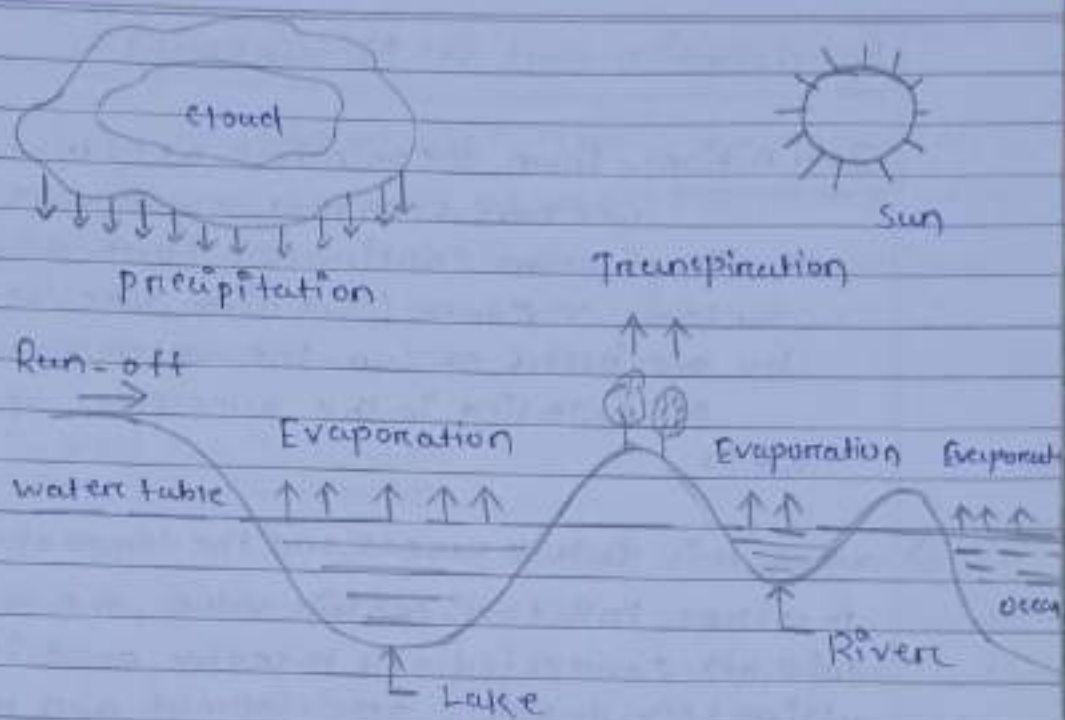 cloud
Sun
Precipitation
Transpiration
Run-off
Evaporation
Evaporation
Evaporat
Water table
Ocean
River
Lake